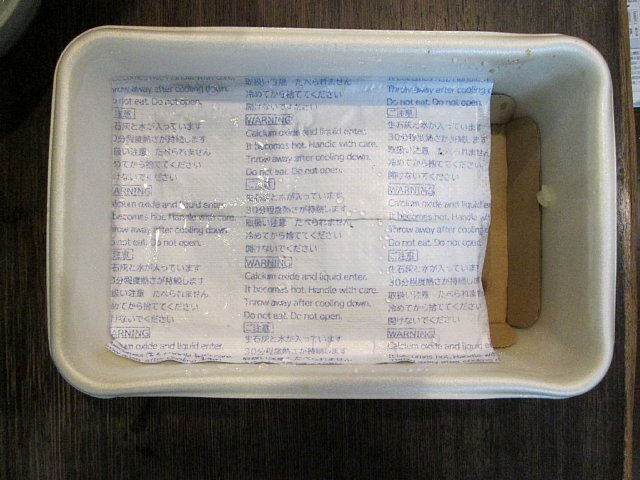 Throw away after cooling down.
Do not eat. Do not open.
ご注意
生石灰と水が入っています
30分程度熱さが持続します
取扱い注意 たべられません
冷めてから捨ててください
開けないでください
WARNING
Calcium oxide and liquid enter.
It becomes hot. Handle with care.
Throw away after cooling down.
Do not eat. Do not open.
ご注意
生石灰と水が入っています
30分程度熱さが持続します
取扱い注意 たべられません
冷めてから捨ててください
開けないでください
WARNING
Calcium oxide and liquid enter.
取扱い注意 たべられません
冷めてから捨ててください
開けないでください
WARNING
Calcium oxide and liquid enter.
It becomes hot. Handle with care.
Throw away after cooling down.
Do not eat. Do not open.
ご注意
生石灰と水が入っています
30分程度熱さが持続します
取扱い注意 たべられません
冷めてから捨ててください
開けないでください
WARNING
Calcium oxide and liquid enter.
It becomes hot. Handle with care.
Throw away after cooling down.
Do not eat. Do not open.
ご注意
生石灰と水が入っています
30分程度熱さが持続します
It becomes hot. Handle
Throw away after cooling
Do not eat. Do not open.
ご注意
生石灰と水が入っています
30分程度熱さが持続します
取扱い注意 たべられ
冷めてから捨ててくだ
開けないでください
WARNING
Calcium oxide and liquid
It becomes hot. Handle
Throw away after cooling
Do not eat. Do not open.
ご注意
生石灰と水が入っています
30分程度熱さが持続し
取扱い注意 たべられ
冷めてから捨ててくだ
開けないでください
WARNING
Calcium oxide and liquid
It becomes hot. Handle